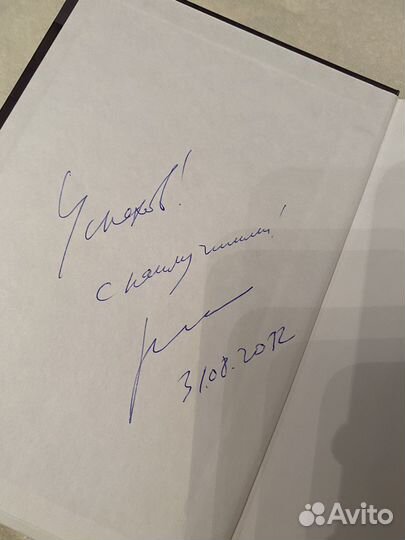 Успехов!
с наилучшими!
31.08.2012
Avito